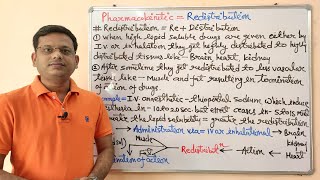 Pharmacokinetic = Redistribution
Redistribution = Re + Distribution
① When high lipid soluble drugs are given either by
I.V or inhalation they get highly distributed to highly
distributed tissues like - Brain, heart, kidney
② After sometime they get redistributed to less vascular
tissue like - Muscle and fat resulting in termination
of action of drugs
Example = I.V anaesthetic - thiopental sodium which induce
in - 10 to 20 sec. but effect cease in - 5 to 15 min
the lipid solubility = greater the redistribution
Administration via I.V or inhalational → Brain
Muscle kidney
Fat Redistribution ← Action ← Heart
of action